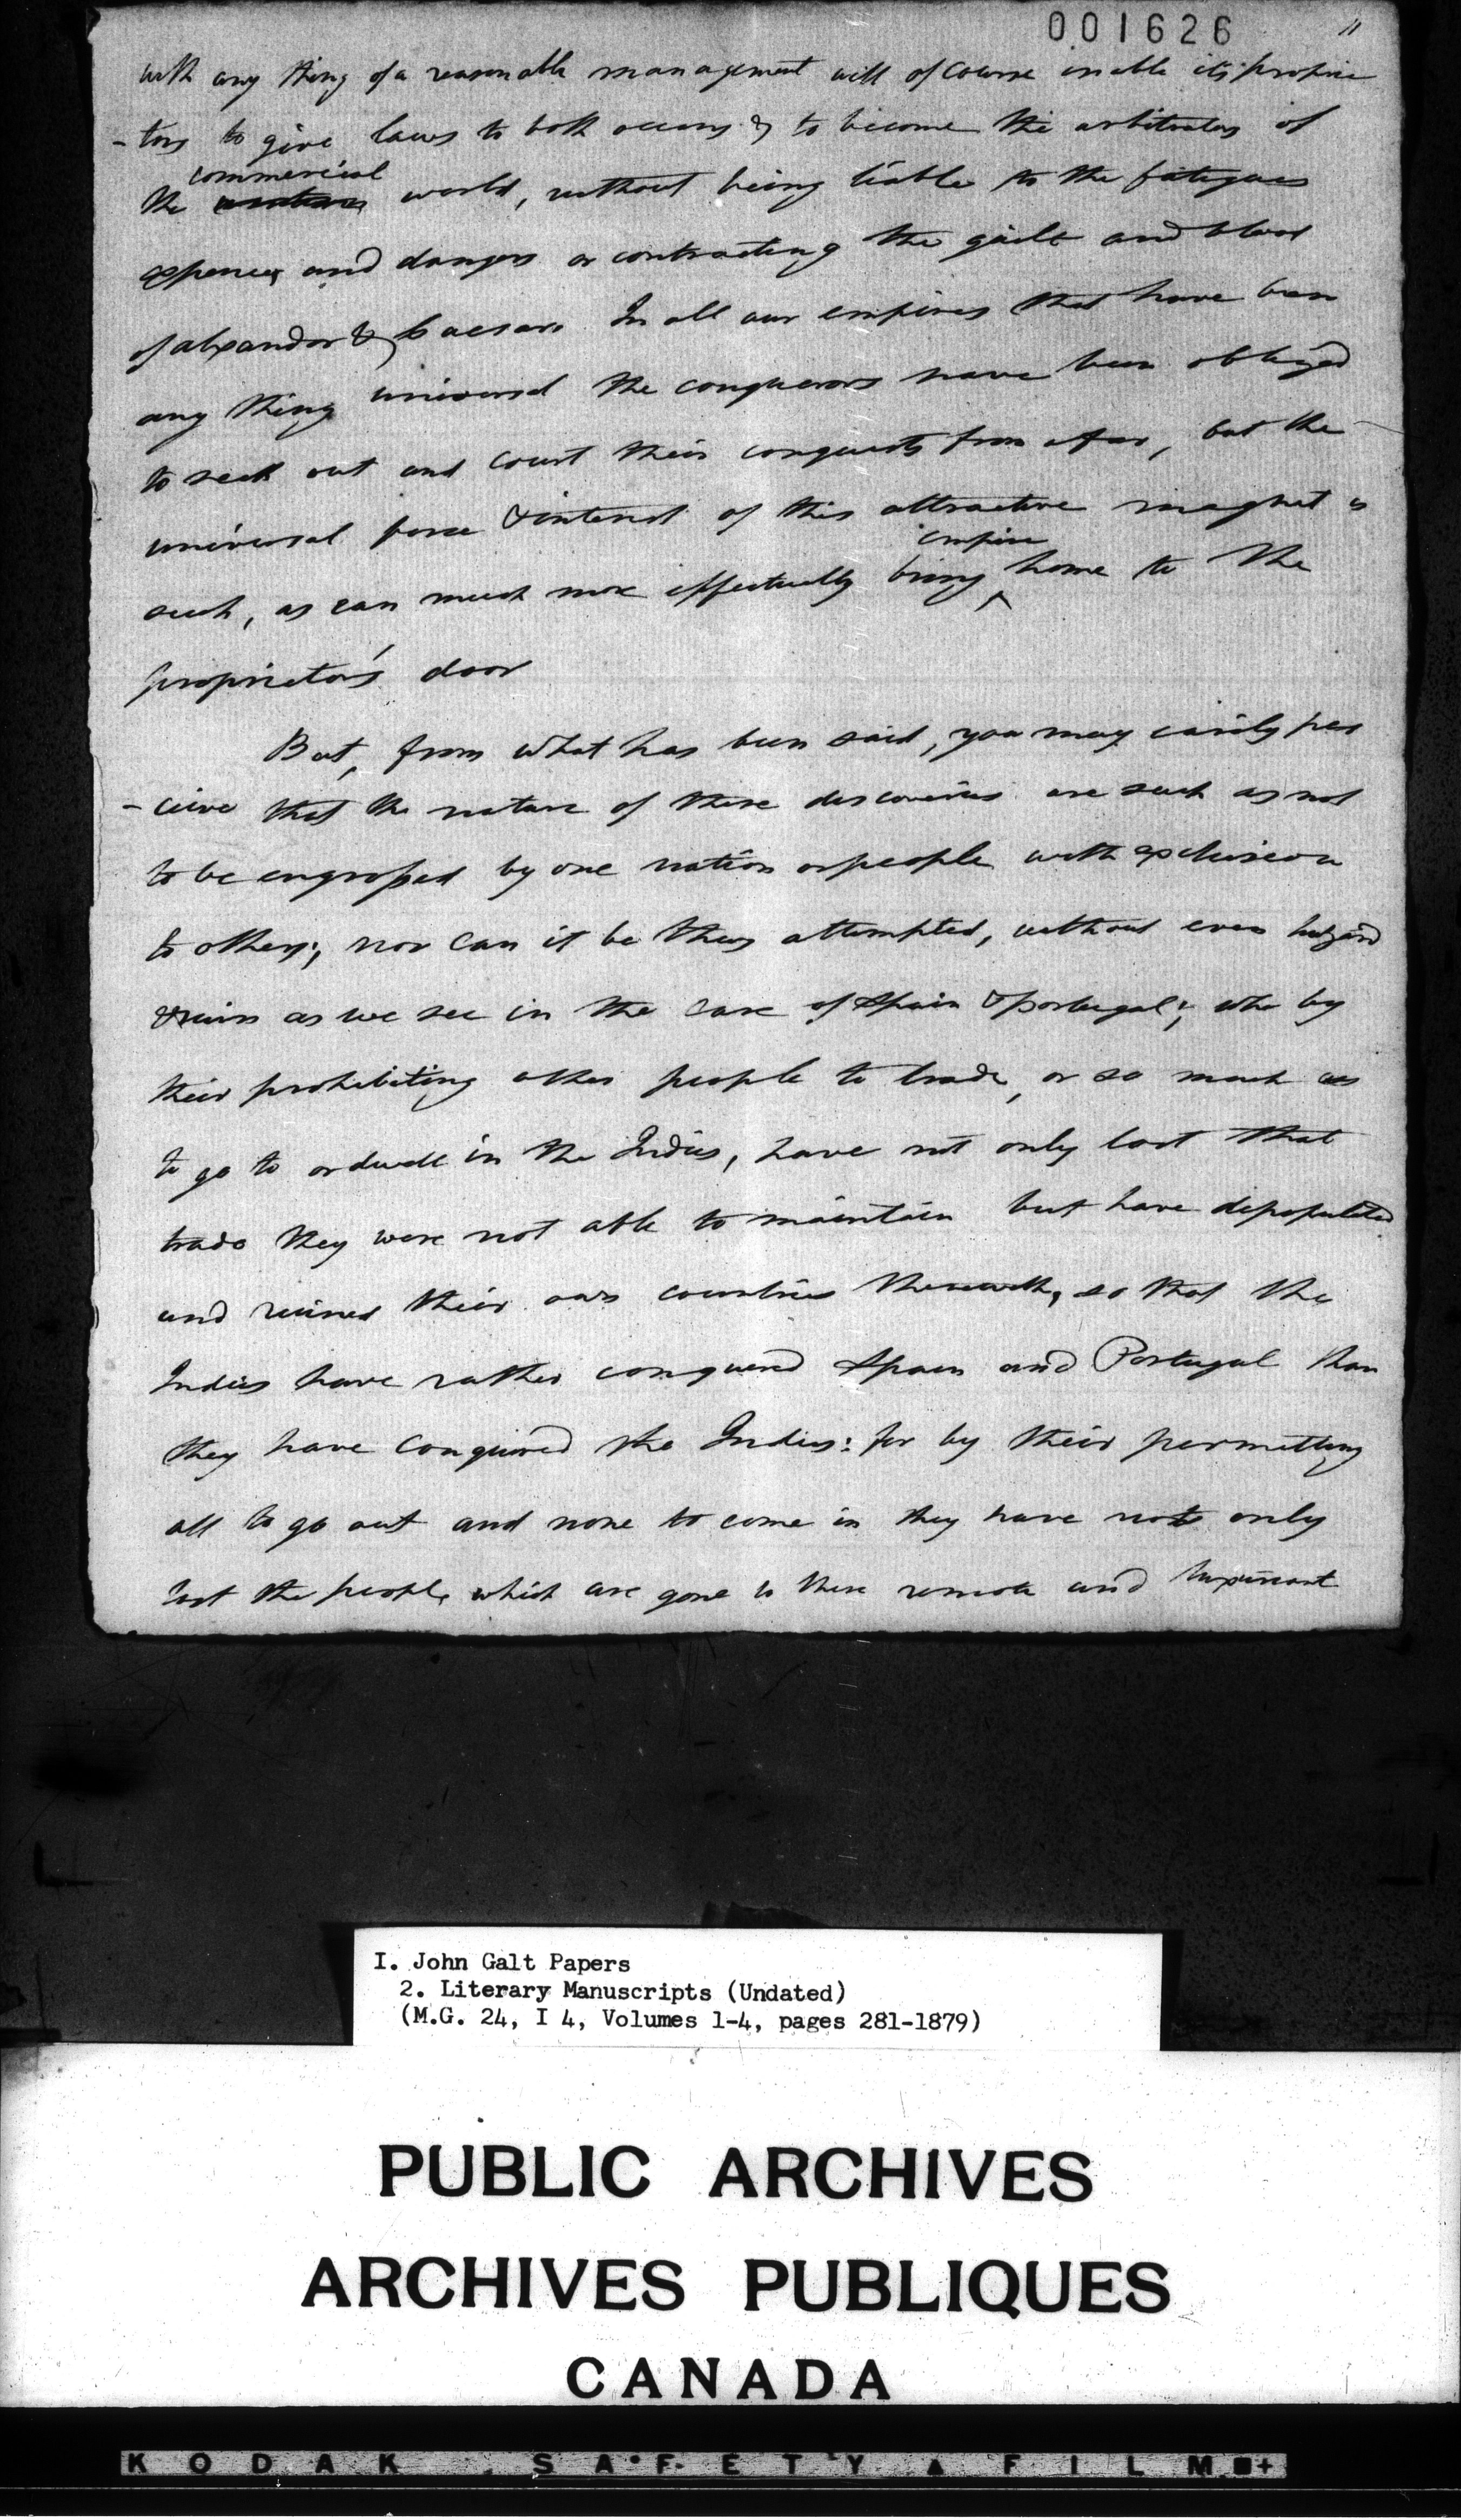 001626
11
with any thing of a reasonable management will of course enable its proprie
-tors to give laws to both oceans & to become the arbitrators of
commercial
the world, without being liable to the fatigues
expences and dangers or contracting the guilt and blood
of alexander & Caesars. In all our empires that have been
any thing universal the conquerors have been obliged
to seek out and court their conquests from afar, but the
universal force & interest of this attractive magnet is
empire
such, as can much more effectually bring ^ home to the
proprietor's door
But, from what has been said, you may easily per
-ceive that the nature of these discoveries are such as not
to be engrossed by one nation or people with exclusion
to others; nor can it be thus attempted, without even hazard
& ruin as we see in the case of Spain & portugal; who by
their prohibiting other people to trade, or so much as
to go to or dwell in the Indies, have not only lost that
trade they were not able to maintain but have depopulated
and ruined their own countries therewith, so that the
Indies have rather conquered Spain and Portugal than
they have conquired the Indies: for by their permitting
all to go out and none to come in they have not only
lost the people which are gone to these remote and luxuriant
I. John Galt Papers
2. Literary Manuscripts (Undated)
(M.G. 24, I 4, Volumes 1-4, pages 281-1879)
PUBLIC ARCHIVES
ARCHIVES PUBLIQUES
CANADA
KODAK SAFETY FILM